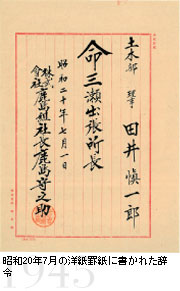 土木部 理事 田井愼一郎
命三瀬出張所長
昭和二十年七月一日
株式會社 鹿島組社長鹿島守之助
昭和20年7月の洋紙罫紙に書かれた辞令
1945